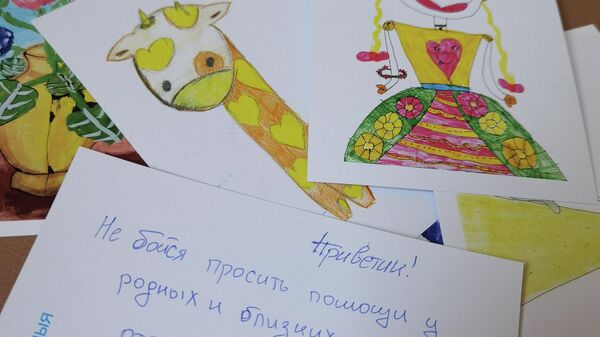 Приветик!
Не бойся просить помощи у
родных и близких